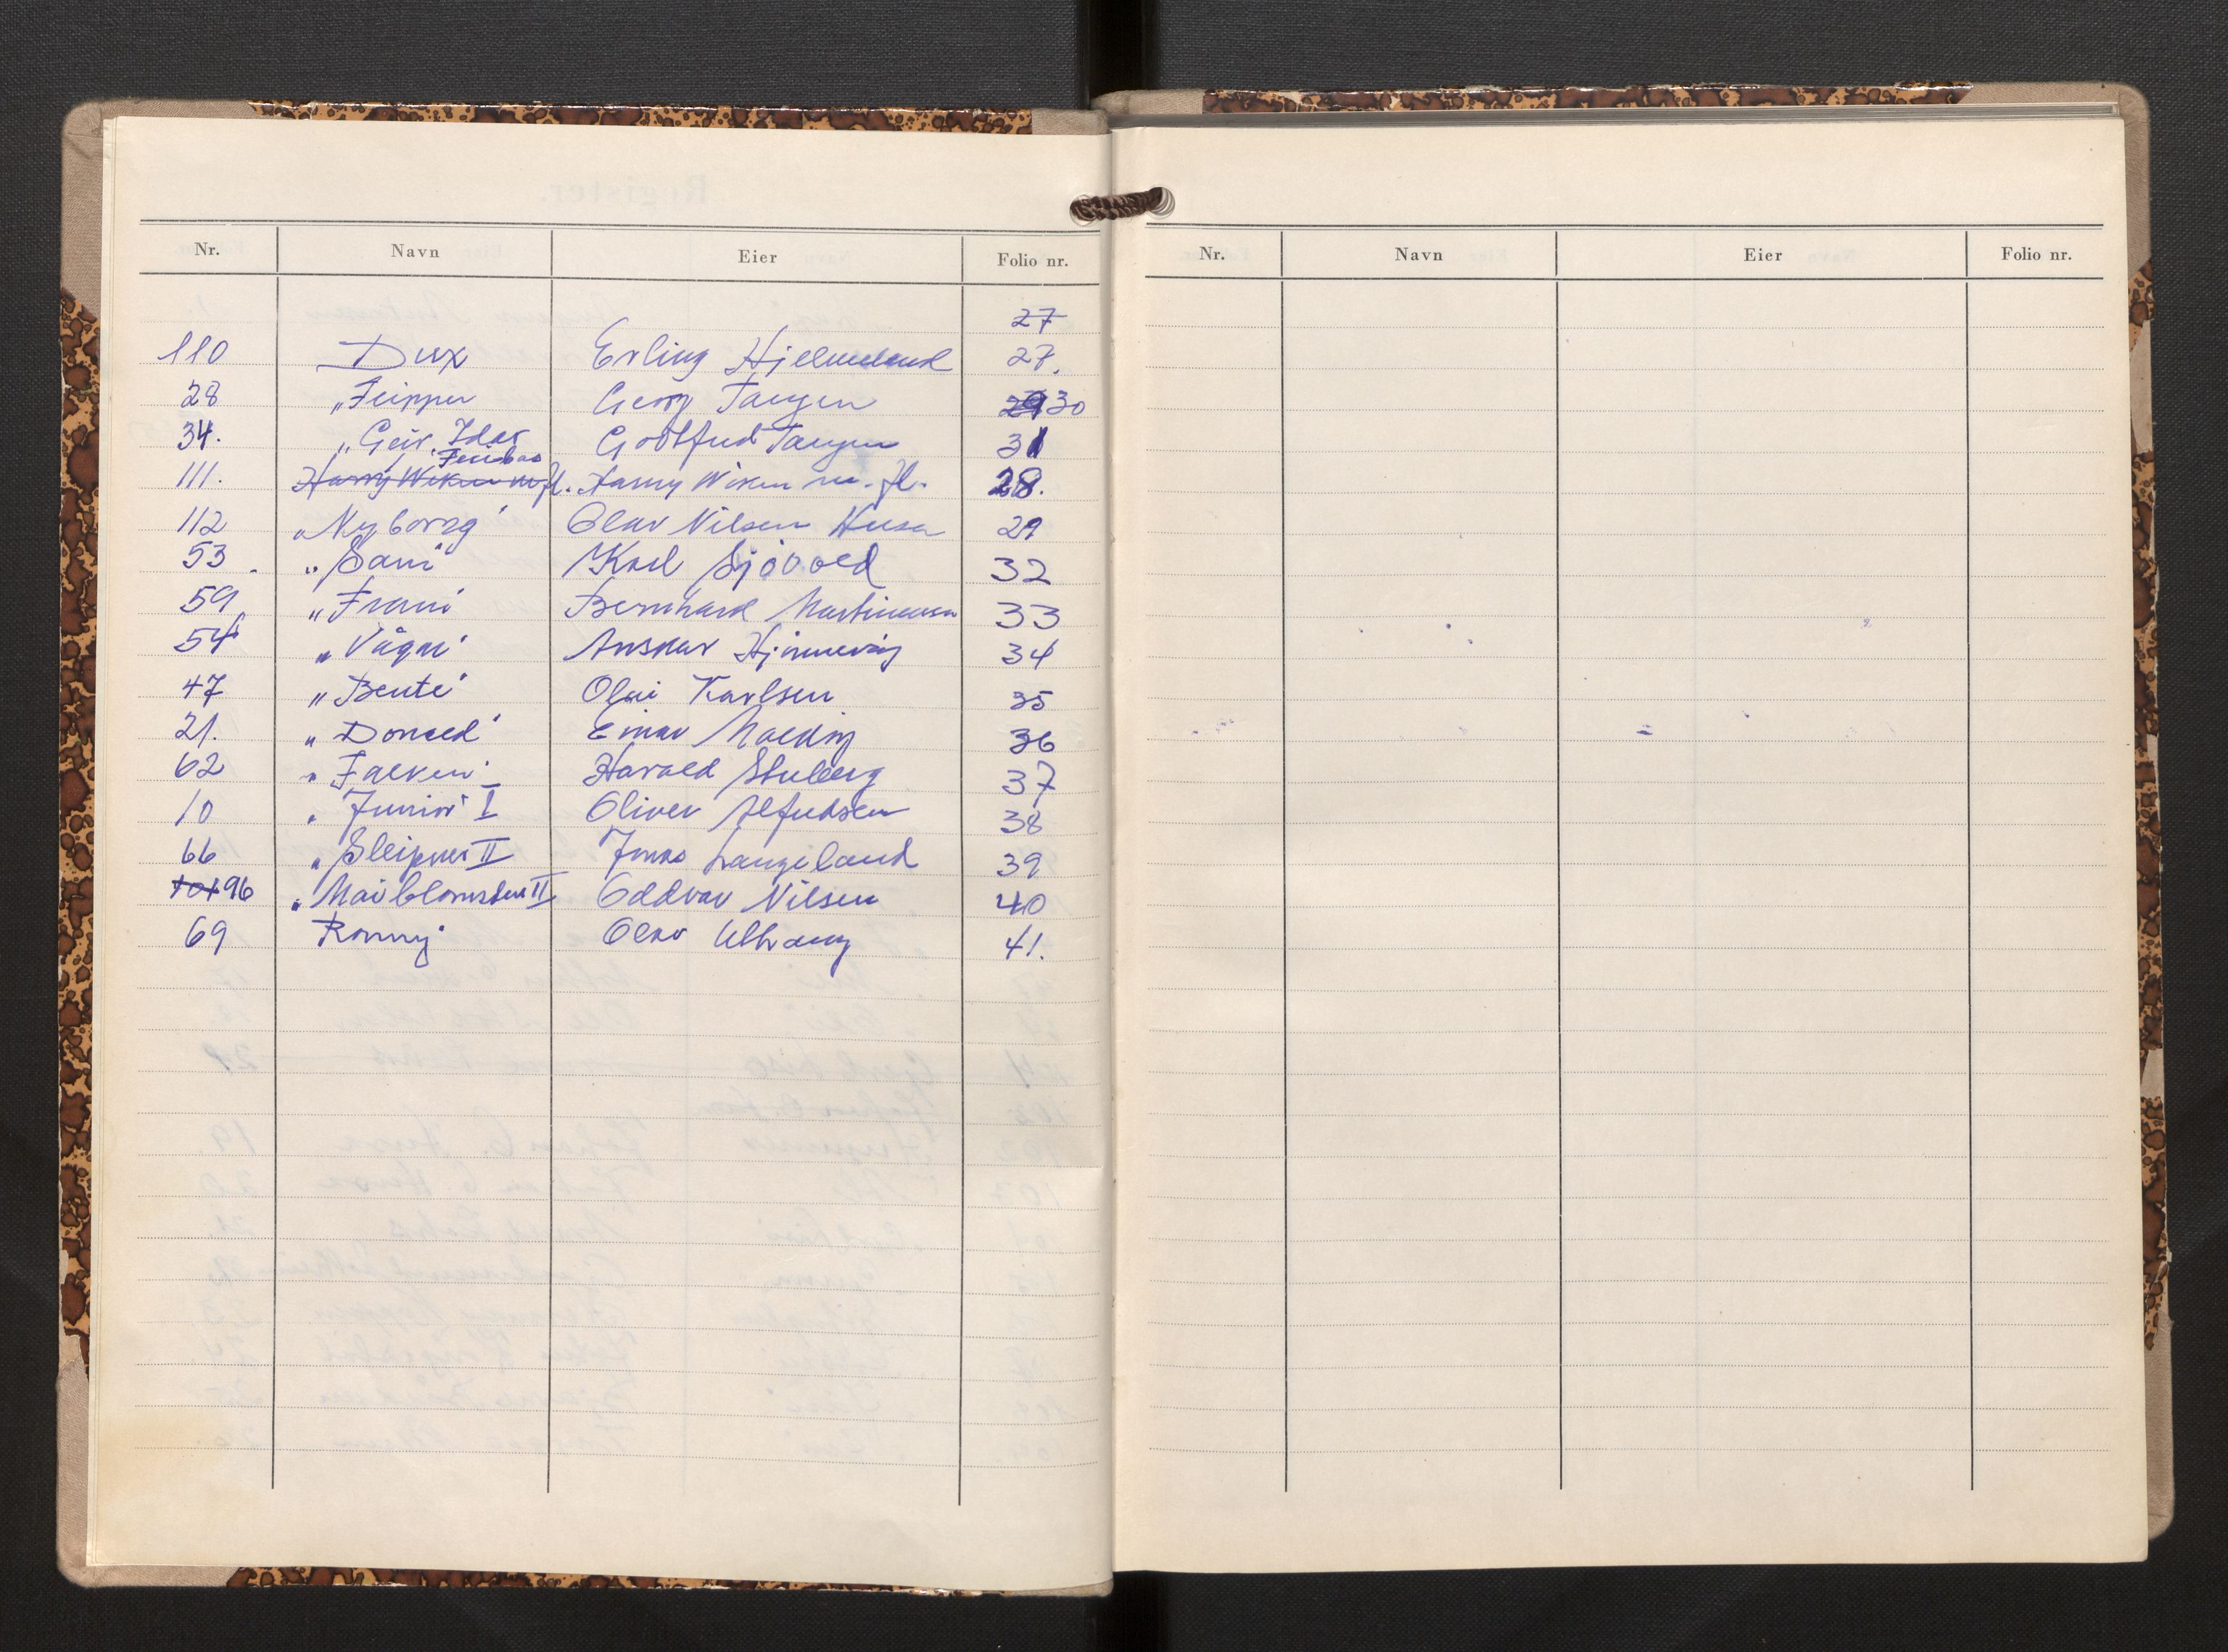 Nr. Navn Eier Folio nr.
27
110 Dux Erling Hjelmeland 27.
28 Georg Tangen 30
34. "Geir. Idar Gottfred Tangen 31
111. Harry Wiken m. fl. Harry Wiken m. fl. 28.
112 "Nyborg" Olav Nilsen Husa 29
53. "Sani" Karl Sjøvold 32
59 "Frani" Bernhard Martinussen 33
54 "Vågar" Anskar Hjinnevåg 34
47 "Bente" Olai Karlsen 35
21. "Donald" Einar 36
62 "Falken" Harald Stuberg 37
10 "Junior" I Oliver Alfredsen 38
66 "Sleipner II Jonas Langeland 39
101 96 "Maiblomsten II Oddvar Nilsen 40
69 Ronny Olav Ulvang 41.
Nr. Navn Eier Folio nr.